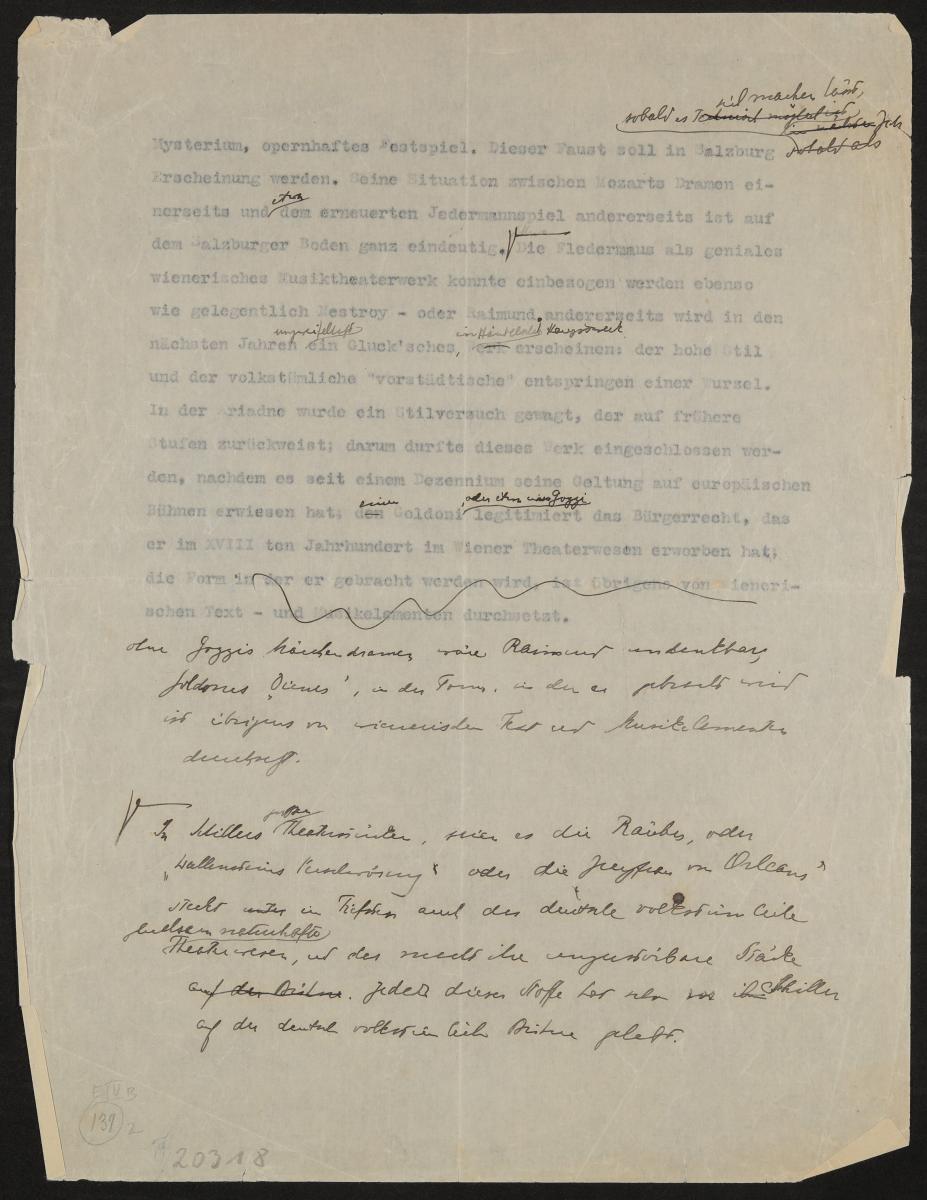 sich machen lässt,
sobald es technisch möglich ist
sobald als
Mysterium, opernhaftes Festspiel. Dieser Faust soll in Salzburg
Erscheinung werden. Seine Situation zwischen Mozarts Dramen ei-
etwa
nerseits und dem erneuerten Jedermannspiel andererseits ist auf
dem Salzburger Boden ganz eindeutig. Die Fledermaus als geniales
wienerisches Musiktheaterwerk konnte einbezogen werden ebenso
wie gelegentlich Nestroy - oder Raimund. andererseits wird in den
unzweifelhaft
nächsten Jahren ein Gluck'sches, Werk erscheinen: der hohe Stil
und der volkstümliche "vorstädtische" entspringen einer Wurzel.
In der Ariadne wurde ein Stilversuch gewagt, der auf frühere
Stufen zurückweist; darum durfte dieses Werk eingeschlossen wer-
den, nachdem es seit einem Dezennium seine Geltung auf europäischen
einen oder etwa einen Gozzi
Bühnen erwiesen hat; den Goldoni legitimiert das Bürgerrecht, das
er im XVIII ten Jahrhundert im Wiener Theaterwesen erworben hat;
die Form in der er gebracht werden wird, ist übrigens von wieneri-
schen Text - und Musikelementen durchsetzt.
ohne Gozzis Märchendramen wäre Raimund undenkbar,
Goldonis "Diener", in der Form, in der er gebracht wird
ist übrigens von wienerischen Text und Musikelementen
durchsetzt.
In Schillers Theaterstücken, seien es die Räuber, oder
"Wallensteins Verschwörung" oder die "Jungfrau von Orleans"
steckt unter im Tiefsten auch das deutsche volkstümliche
gleichsam naturhafte
Theaterwesen, und das macht ihre unzerstörbare Stärke
auf der Bühne. Jeder dieser Stoffe hat schon vor ihm Schiller
auf der deutschen volkstümlichen Bühne gelebt.
E IV B
139
2
20318